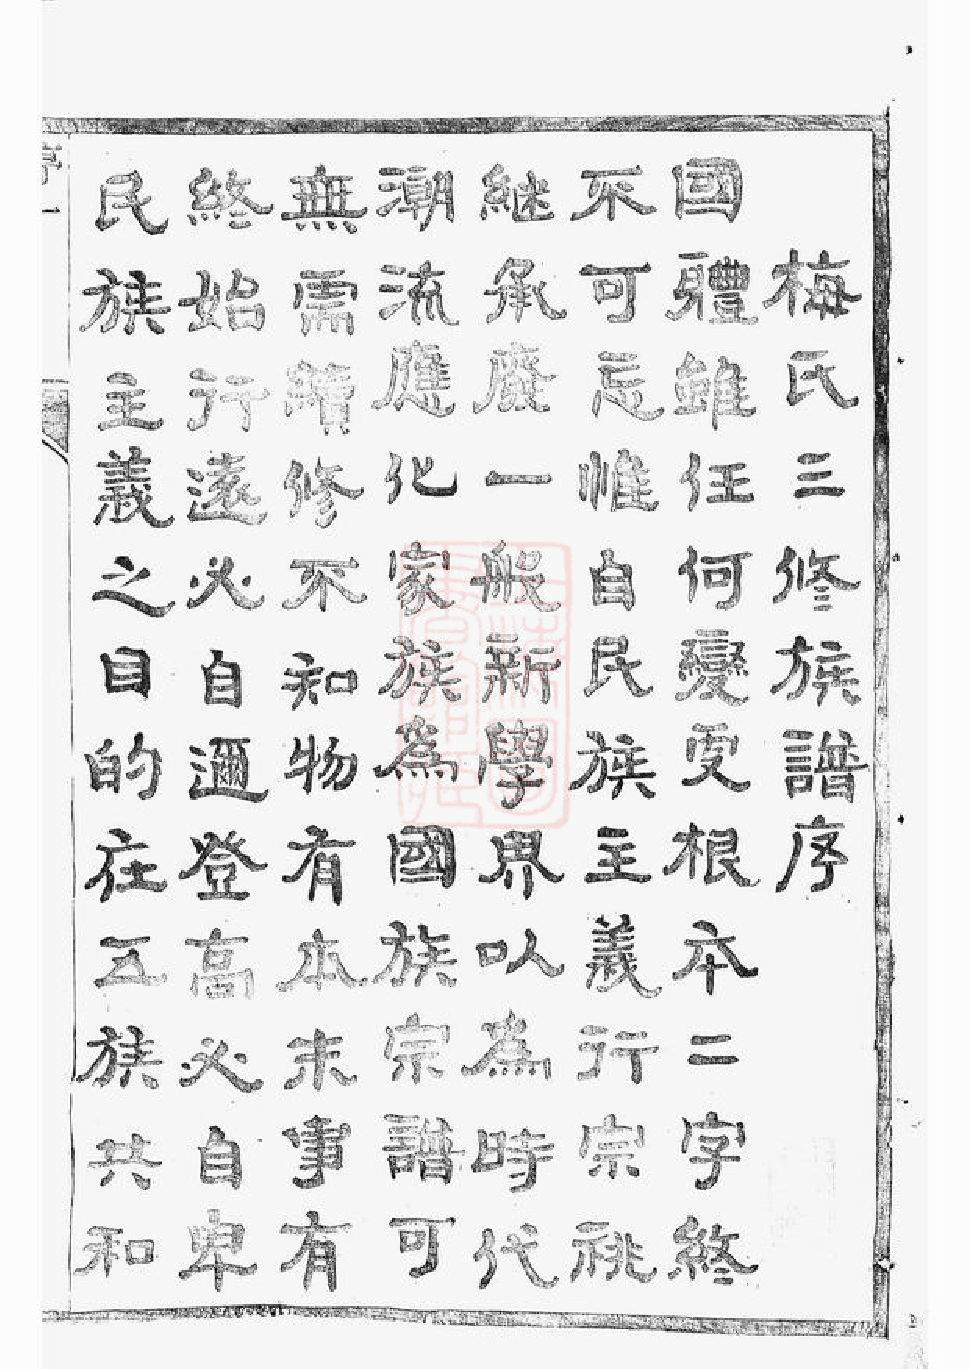 梅氏三修族譜序
國體雖任何變更根本二字終
不可忘惟自民族主義行宗祧
継承廢一般新學界以為時代
潮流應化家族為國族宗譜可
無需續修不知物有本末事有
終始行遠必自邇登高必自卑
民族主義之目的在五族共和
序一